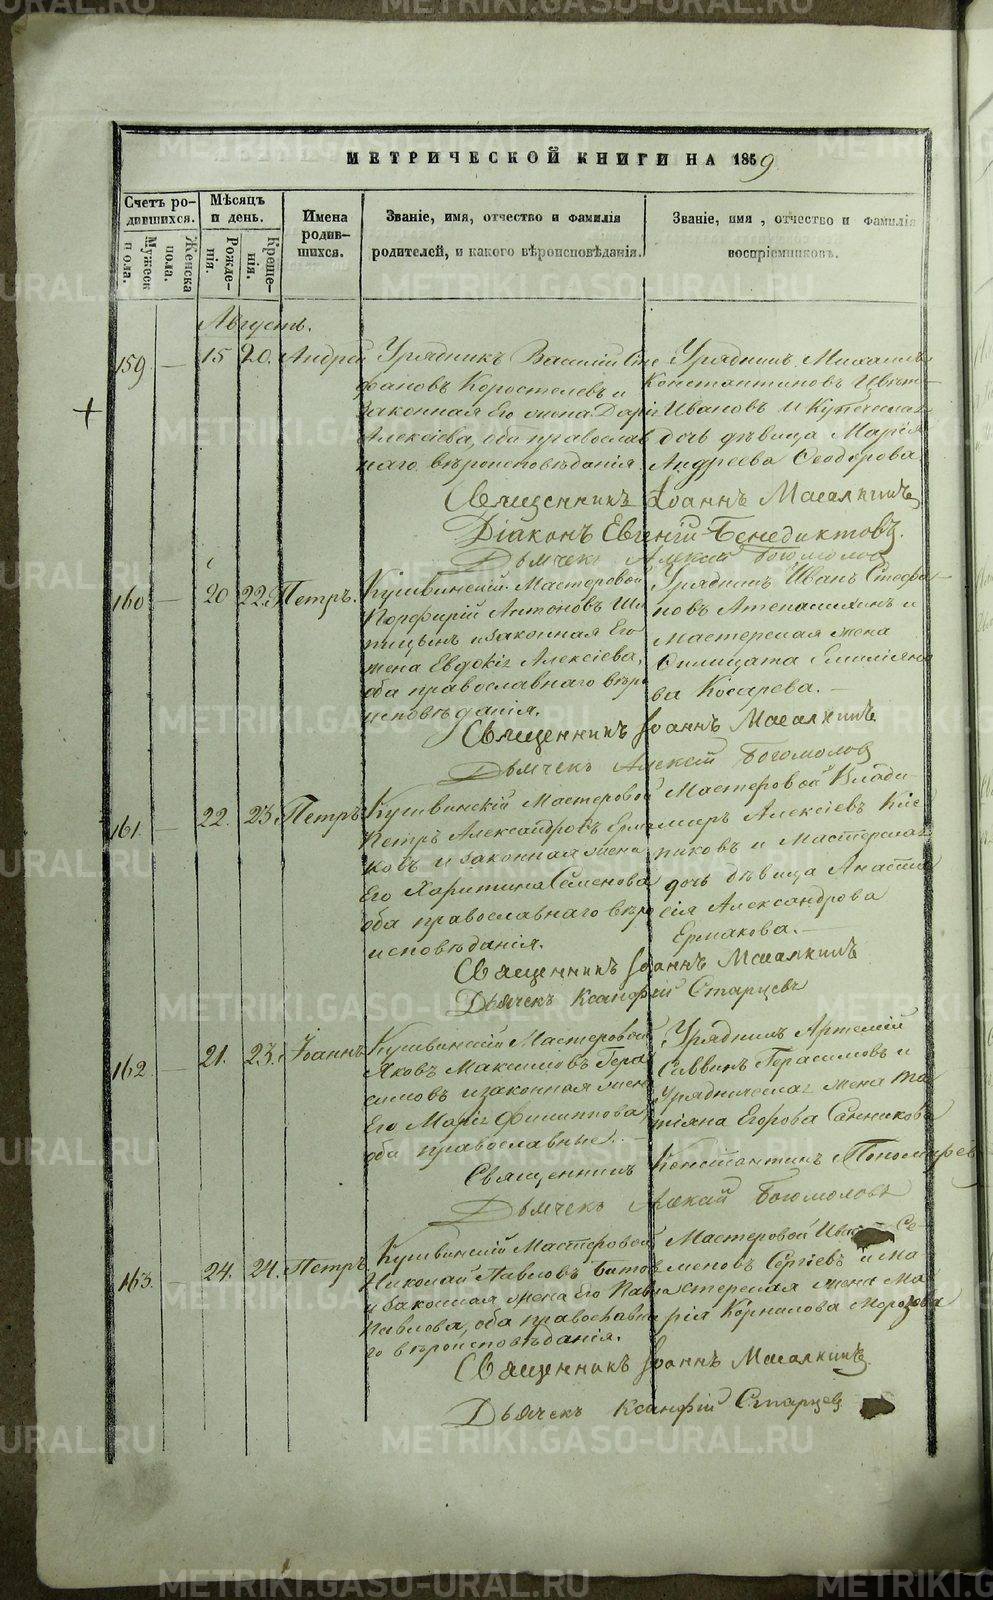 МЕТРИЧЕСКОЙ КНИГИ НА 1859
Счетъ родившихся.
Мужеска пола.
Женска пола.
Мѣсяцъ и день.
Рожденія.
Крещенія.
Имена родившихся.
Званіе, имя, отчество и фамилія родителей, и какого вѣроисповѣданія.
Званіе, имя, отчество и фамилія воспріемниковъ.
Августъ.
159 — 15 20. Андрей
Урядникъ Василій Сте
фановъ Коростелевъ и
Законная Его жена Дарія
Алексіева, оба православ
наго вѣроисповѣданія
Урядникъ Михаилъ
Константиновъ
Ивановъ и Купеческая
дочь дѣвица Марія
Андреева Ѳеодорова
Священникъ Іоаннъ Масалкинъ
Діаконъ Евгеній Бенедиктовъ.
Дьячекъ Алексій Богомолов
160 — 20 22. Петръ.
Кушвинскій Мастеровой
Порфирій Антоновъ
и законная Его
жена Евдокія Алексіева,
оба православнаго вѣро
исповѣданія.
Урядникъ Иванъ Стефа
новъ и
Мастерская жена
Емиліяно
ва Косарева. —
Священникъ Іоаннъ Масалкинъ
Дьячекъ Алексій Богомолов
161. — 22. 23. Петръ
Кушвинскій Мастеровой
Петръ Александровъ Ерма
ковъ и законная жена
Его Харитина Семенова
оба православнаго вѣро
исповѣданія.
Мастеровой Влади
миръ Алексіевъ
и Мастерская
дочь дѣвица Анаста
сія Александрова
Ермакова. —
Священникъ Іоаннъ Масалкинъ
Дьячекъ Ксанфій Старцевъ
162. — 21. 23. Іоаннъ
Кушвинскій Мастеровой
Яковъ Максимовъ Гера
симовъ и законная жена
Его Марія Филиппова,
оба православные. —
Урядникъ Артемій
Саввинъ Герасимовъ и
Урядническая жена Та
тіяна Егорова Санникова
Священникъ Константинъ Пономарев
Дьячекъ Алексій Богомоловъ
163. — 24. 24. Петръ.
Кушвинскій Мастеровой
Николай Павловъ Батов
и Законная жена Его
Павлова, оба православна
го вѣроисповѣданія.
Мастеровой Иванъ Се
меновъ Сергіевъ и Ма
стерская жена Ма
рія Корнилова Морозова
Священникъ Іоаннъ Масалкинъ.
Дьячекъ Ксанфій Старцев
METRIKI.GASO-URAL.RU